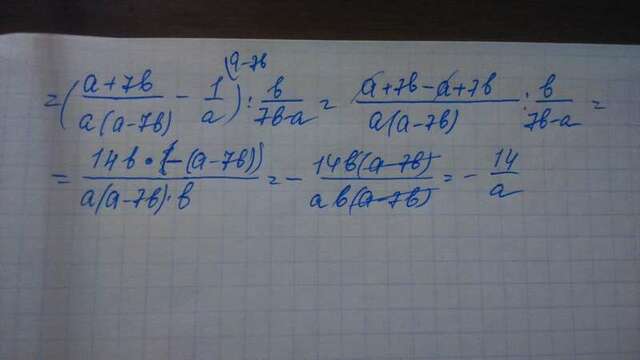 a-7b
= ( a+7b / a(a-7b) - 1 / a ) : b / 7b-a = a+7b-a+7b / a(a-7b) : b / 7b-a =
= 14b • (-(a-7b)) / a(a-7b)·b = - 14b(a-7b) / ab(a-7b) = - 14 / a